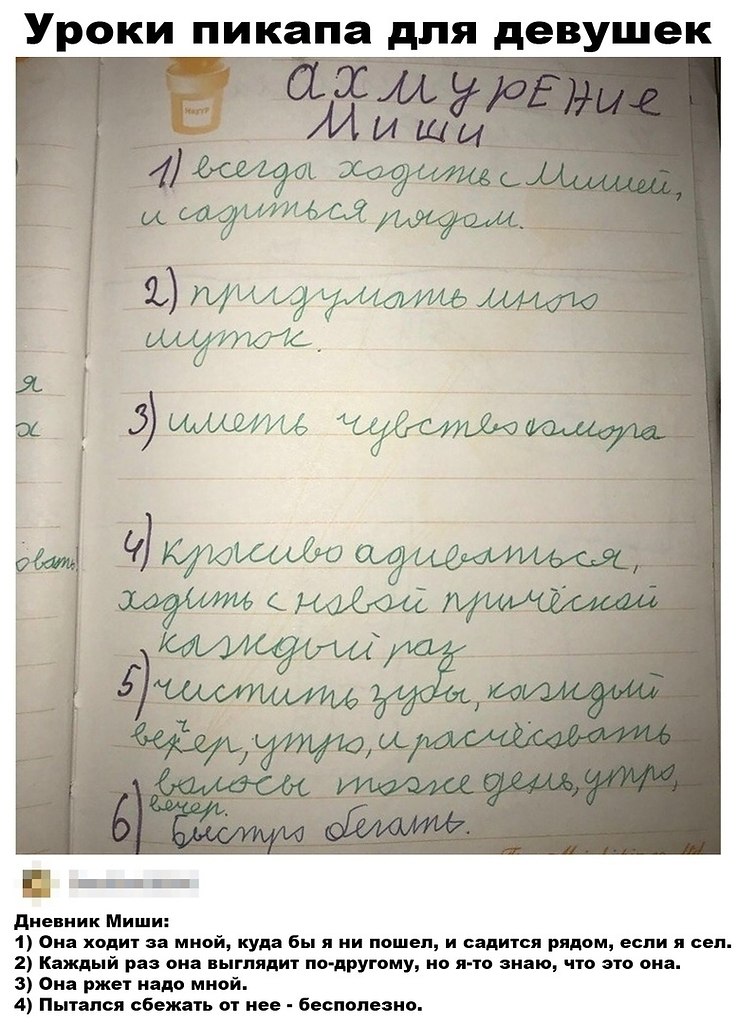 Уроки пикапа для девушек
ЙОГУРТ
АХМУРЕНИЕ
Миши
1) всегда ходить с Мишей,
и садиться рядом.
2) придумать много
шуток.
я
3) иметь чувство юмора
х
4) красиво адиваться,
овать
ходить с новой причёской
каждый раз
5) чистить зубы, каждый
вечер, утро, и расчёсовать
волосы тоже день, утро,
вечер.
6) Быстро бегать.
Дневник Миши:
1) Она ходит за мной, куда бы я ни пошел, и садится рядом, если я сел.
2) Каждый раз она выглядит по-другому, но я-то знаю, что это она.
3) Она ржет надо мной.
4) Пытался сбежать от нее - бесполезно.